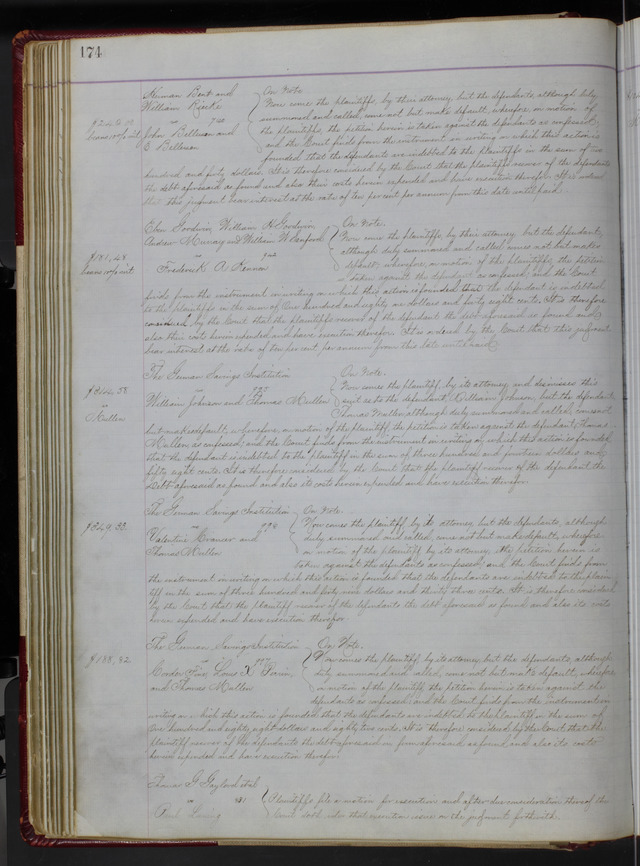 174
Herman Bent and On Note
William Riecke Now comes the plaintiffs, by their attorney, but the defendants although duly
vs summoned and called, come not but make default, wherefore on motion of
bears 10% int. John Bellman and the plaintiffs the petition herein is taken against the defendants as confessed
Bellman and the Court finds from the instrument in writing on which this action is
founded that the defendants are indebted to the plaintiffs in the sum of two
hundred and forty dollars. It is therefore considered by the Court that the plaintiffs recover of the defendants
the debt aforesaid as found and also their costs herein expended and have execution therefor. It is ordered
that this judgment bear interest at the rate of ten per cent per annum from this date until paid.
Eben Goodwin, William H. Goodwin On Note.
Andrew Murray and William W. Sanford Now comes the plaintiffs, by their attorney but the defendant,
$181.48 vs although duly summoned and called comes not but makes
bears 10% int. Frederick A. default, wherefore, on motion of the plaintiffs, the petition
is taken against the defendant as confessed, and the Court
finds from the instrument in writing on which this action is founded that the defendant is indebted
to the plaintiffs in the sum of One hundred and eighty one dollars and forty eight cents. It is therefore
considered by the Court that the plaintiffs recover of the defendant the debt aforesaid as found and
also their costs herein expended and have execution therefor. It is ordered by the Court that this judgment
bear interest at the rate of ten per cent. per annum from this date until paid.
The German Savings Institution On Note.
vs Now comes the plaintiff, by its attorney and dismisses this
$314.58 William Johnson and Thomas Mullen suit as to the defendant, William Johnson, but the defendant
vs Mullen Thomas Mullen although duly summoned and called, comes not
but makes default, wherefore, on motion of the plaintiff the petition is taken against the defendant, Thomas
Mullen, as confessed; and the Court finds from the instrument in writing on which this action is founded
that the defendant is indebted to the plaintiff in the sum of three hundred and fourteen dollars and
fifty eight cents. It is therefore considered by the Court that the plaintiff recover of the defendant the
debt aforesaid as found and also its costs herein expended and have execution therefor.
The German Savings Institution On Note.
$349.33. vs Now comes the plaintiff by its attorney but the defendants, although
Valentine and duly summoned and called, come not but make default, wherefore
Thomas Mullen on motion of the plaintiff by its attorney, the petition herein is
taken against the defendants as confessed; and the Court finds from
the instrument in writing on which this action is founded that the defendants are indebted to the plain-
tiff in the sum of three hundred and forty nine dollars and thirty three cents. It is therefore considered
by the Court that the plaintiff recover of the defendants the debt aforesaid as found and also its costs
herein expended and have execution therefor.
The German Savings Institution On Note.
$188.82 vs Now comes the plaintiff by its attorney but the defendants, although
Louis X. duly summoned and called, come not but make default, wherefore
and Thomas Mullen on motion of the plaintiff the petition herein is taken against the
defendants as confessed; and the Court finds from the instrument in
writing on which this action is founded that the defendants are indebted to the plaintiff in the sum of
One hundred and eighty eight dollars and eighty two cents. It is therefore considered by the Court that the
plaintiff recover of the defendants the debt aforesaid as found and also its costs
herein expended and have execution therefor.
Thomas G. Gaylord et al
vs Plaintiffs file a motion for execution and after due consideration thereof the
Court doth order that execution issue on the judgment forthwith.